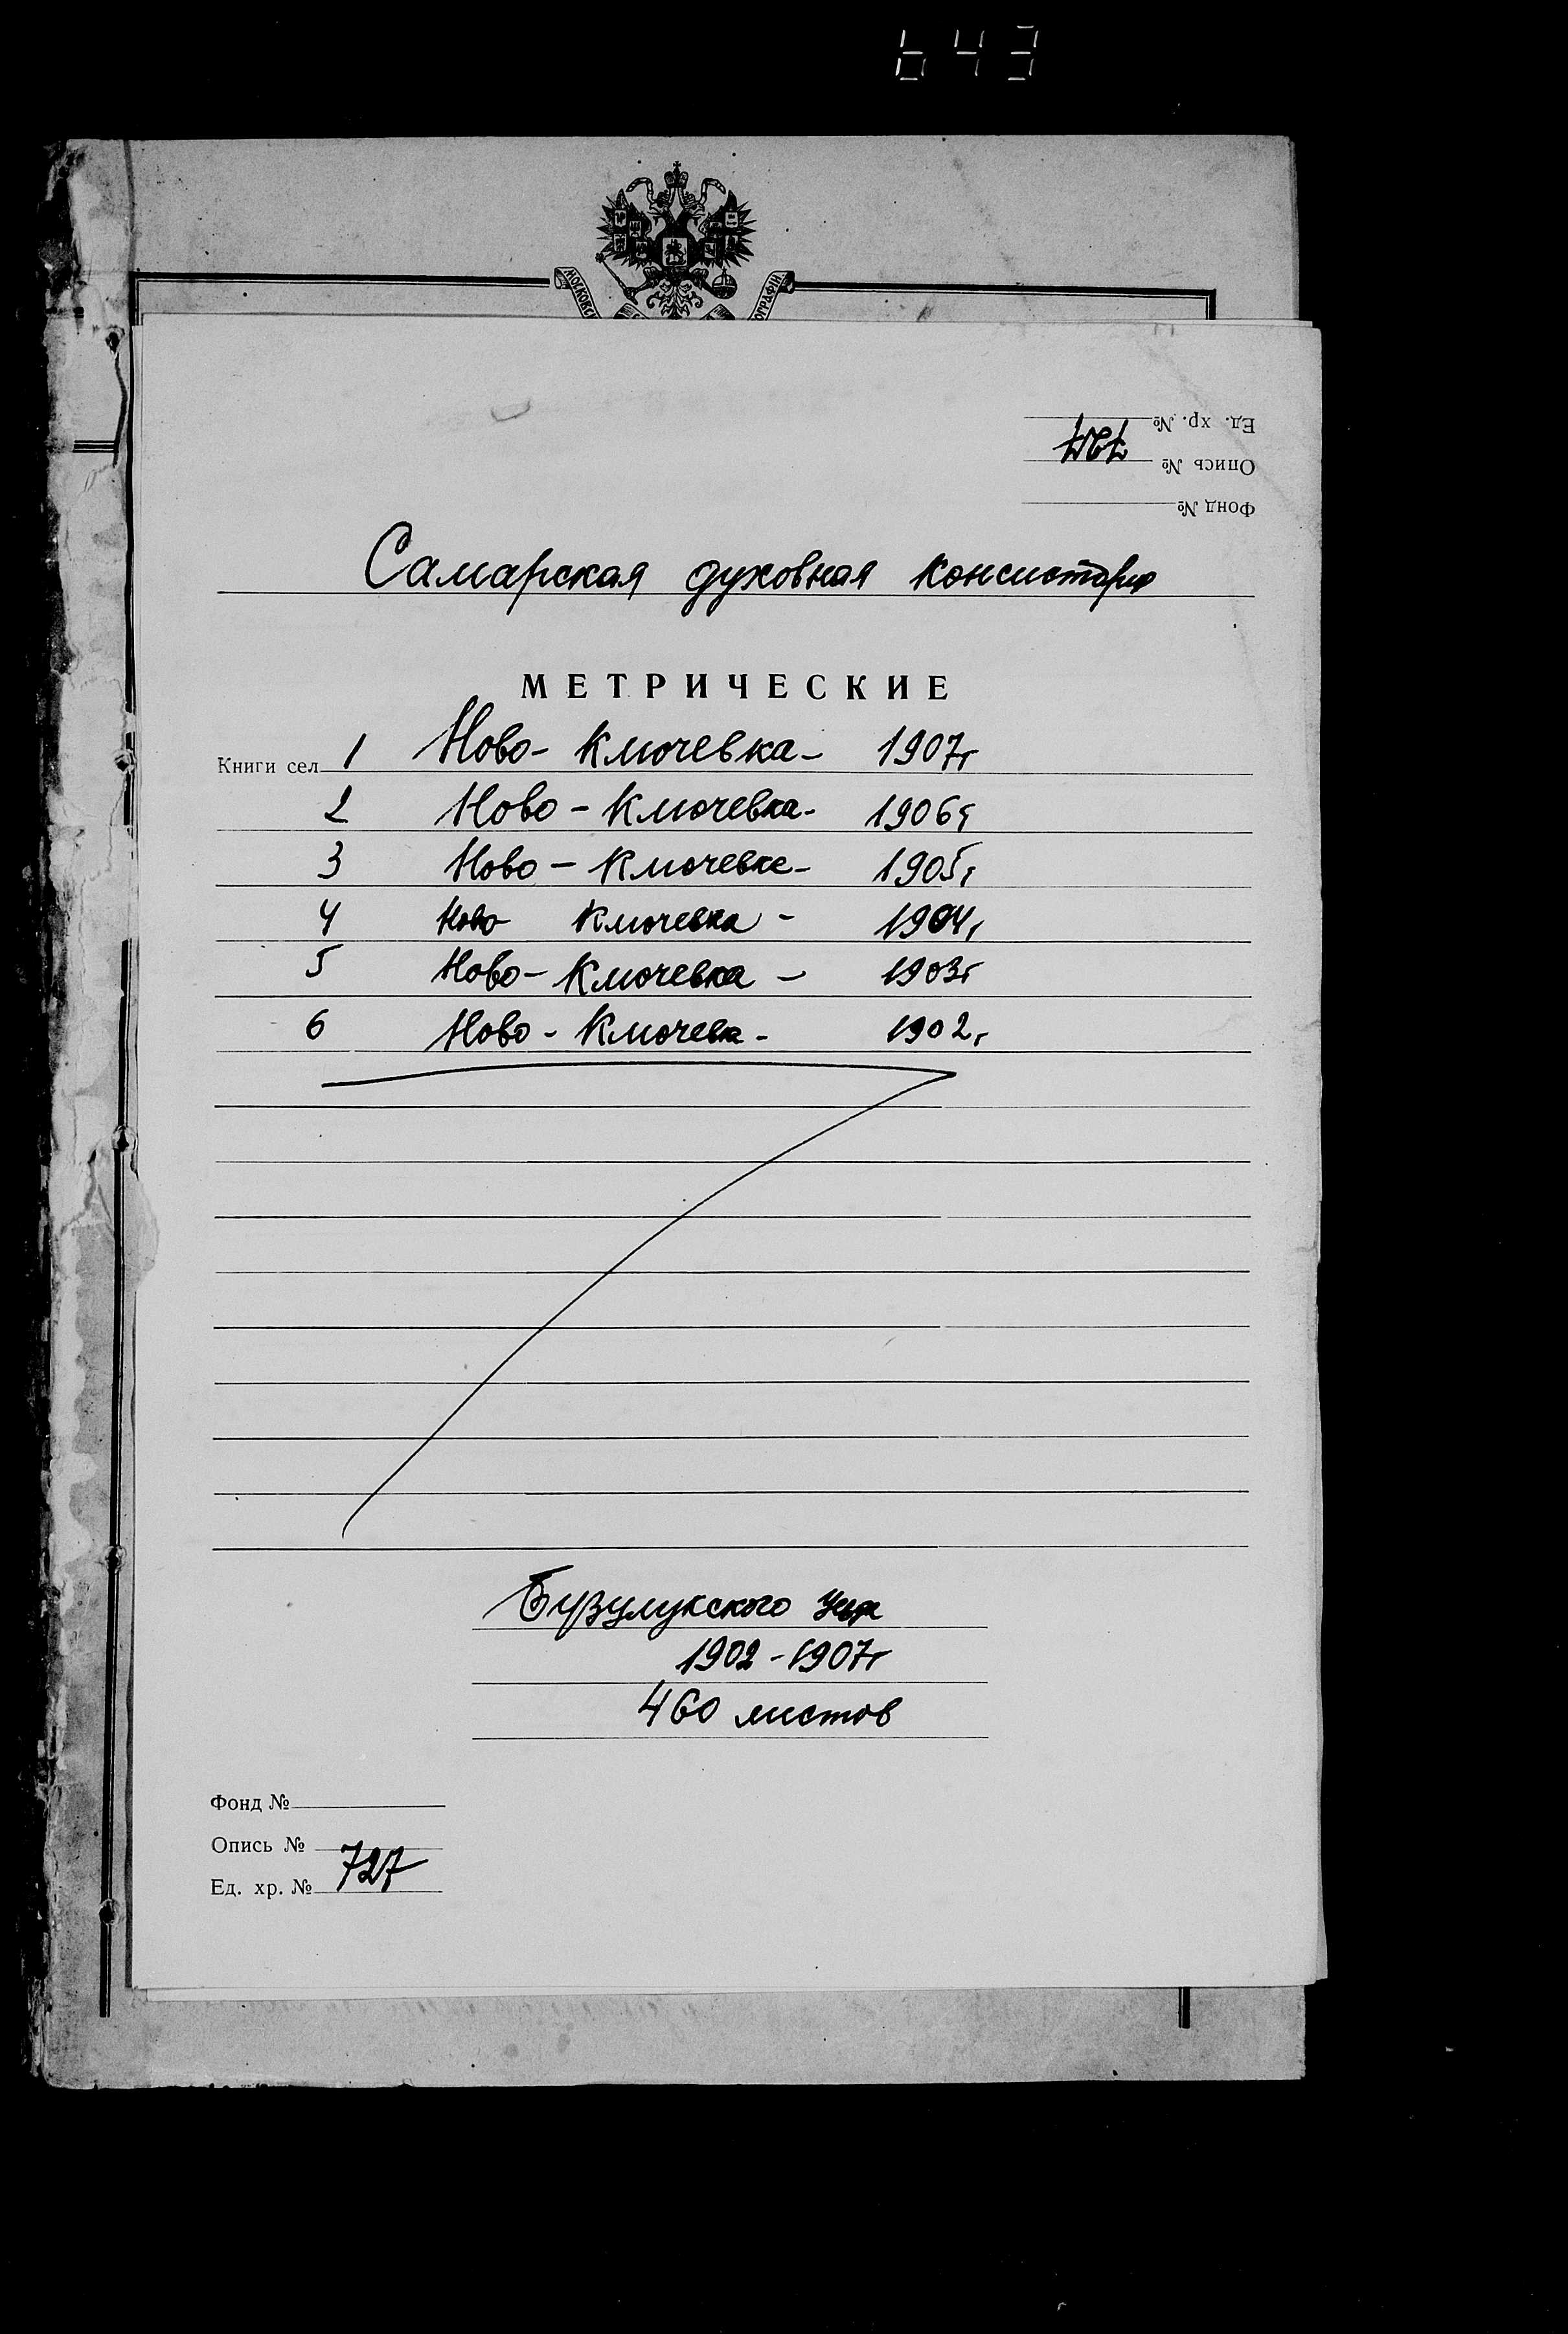 643
МОСКОВС
ОГРАФІИ
Ед. хр. №
Опись № 727
Фонд №
Самарская духовная консистория
МЕТРИЧЕСКИЕ
Книги сел 1 Ново-Ключевка- 1907г
2 Ново-Ключевка- 1906г
3 Ново-Ключевка- 1905г
4 Ново Ключевка- 1904г
5 Ново-Ключевка- 1903г
6 Ново-Ключевка- 1902г
Бузулукского уезда
1902-1907г
460 листов
Фонд №
Опись №
Ед. хр. № 727